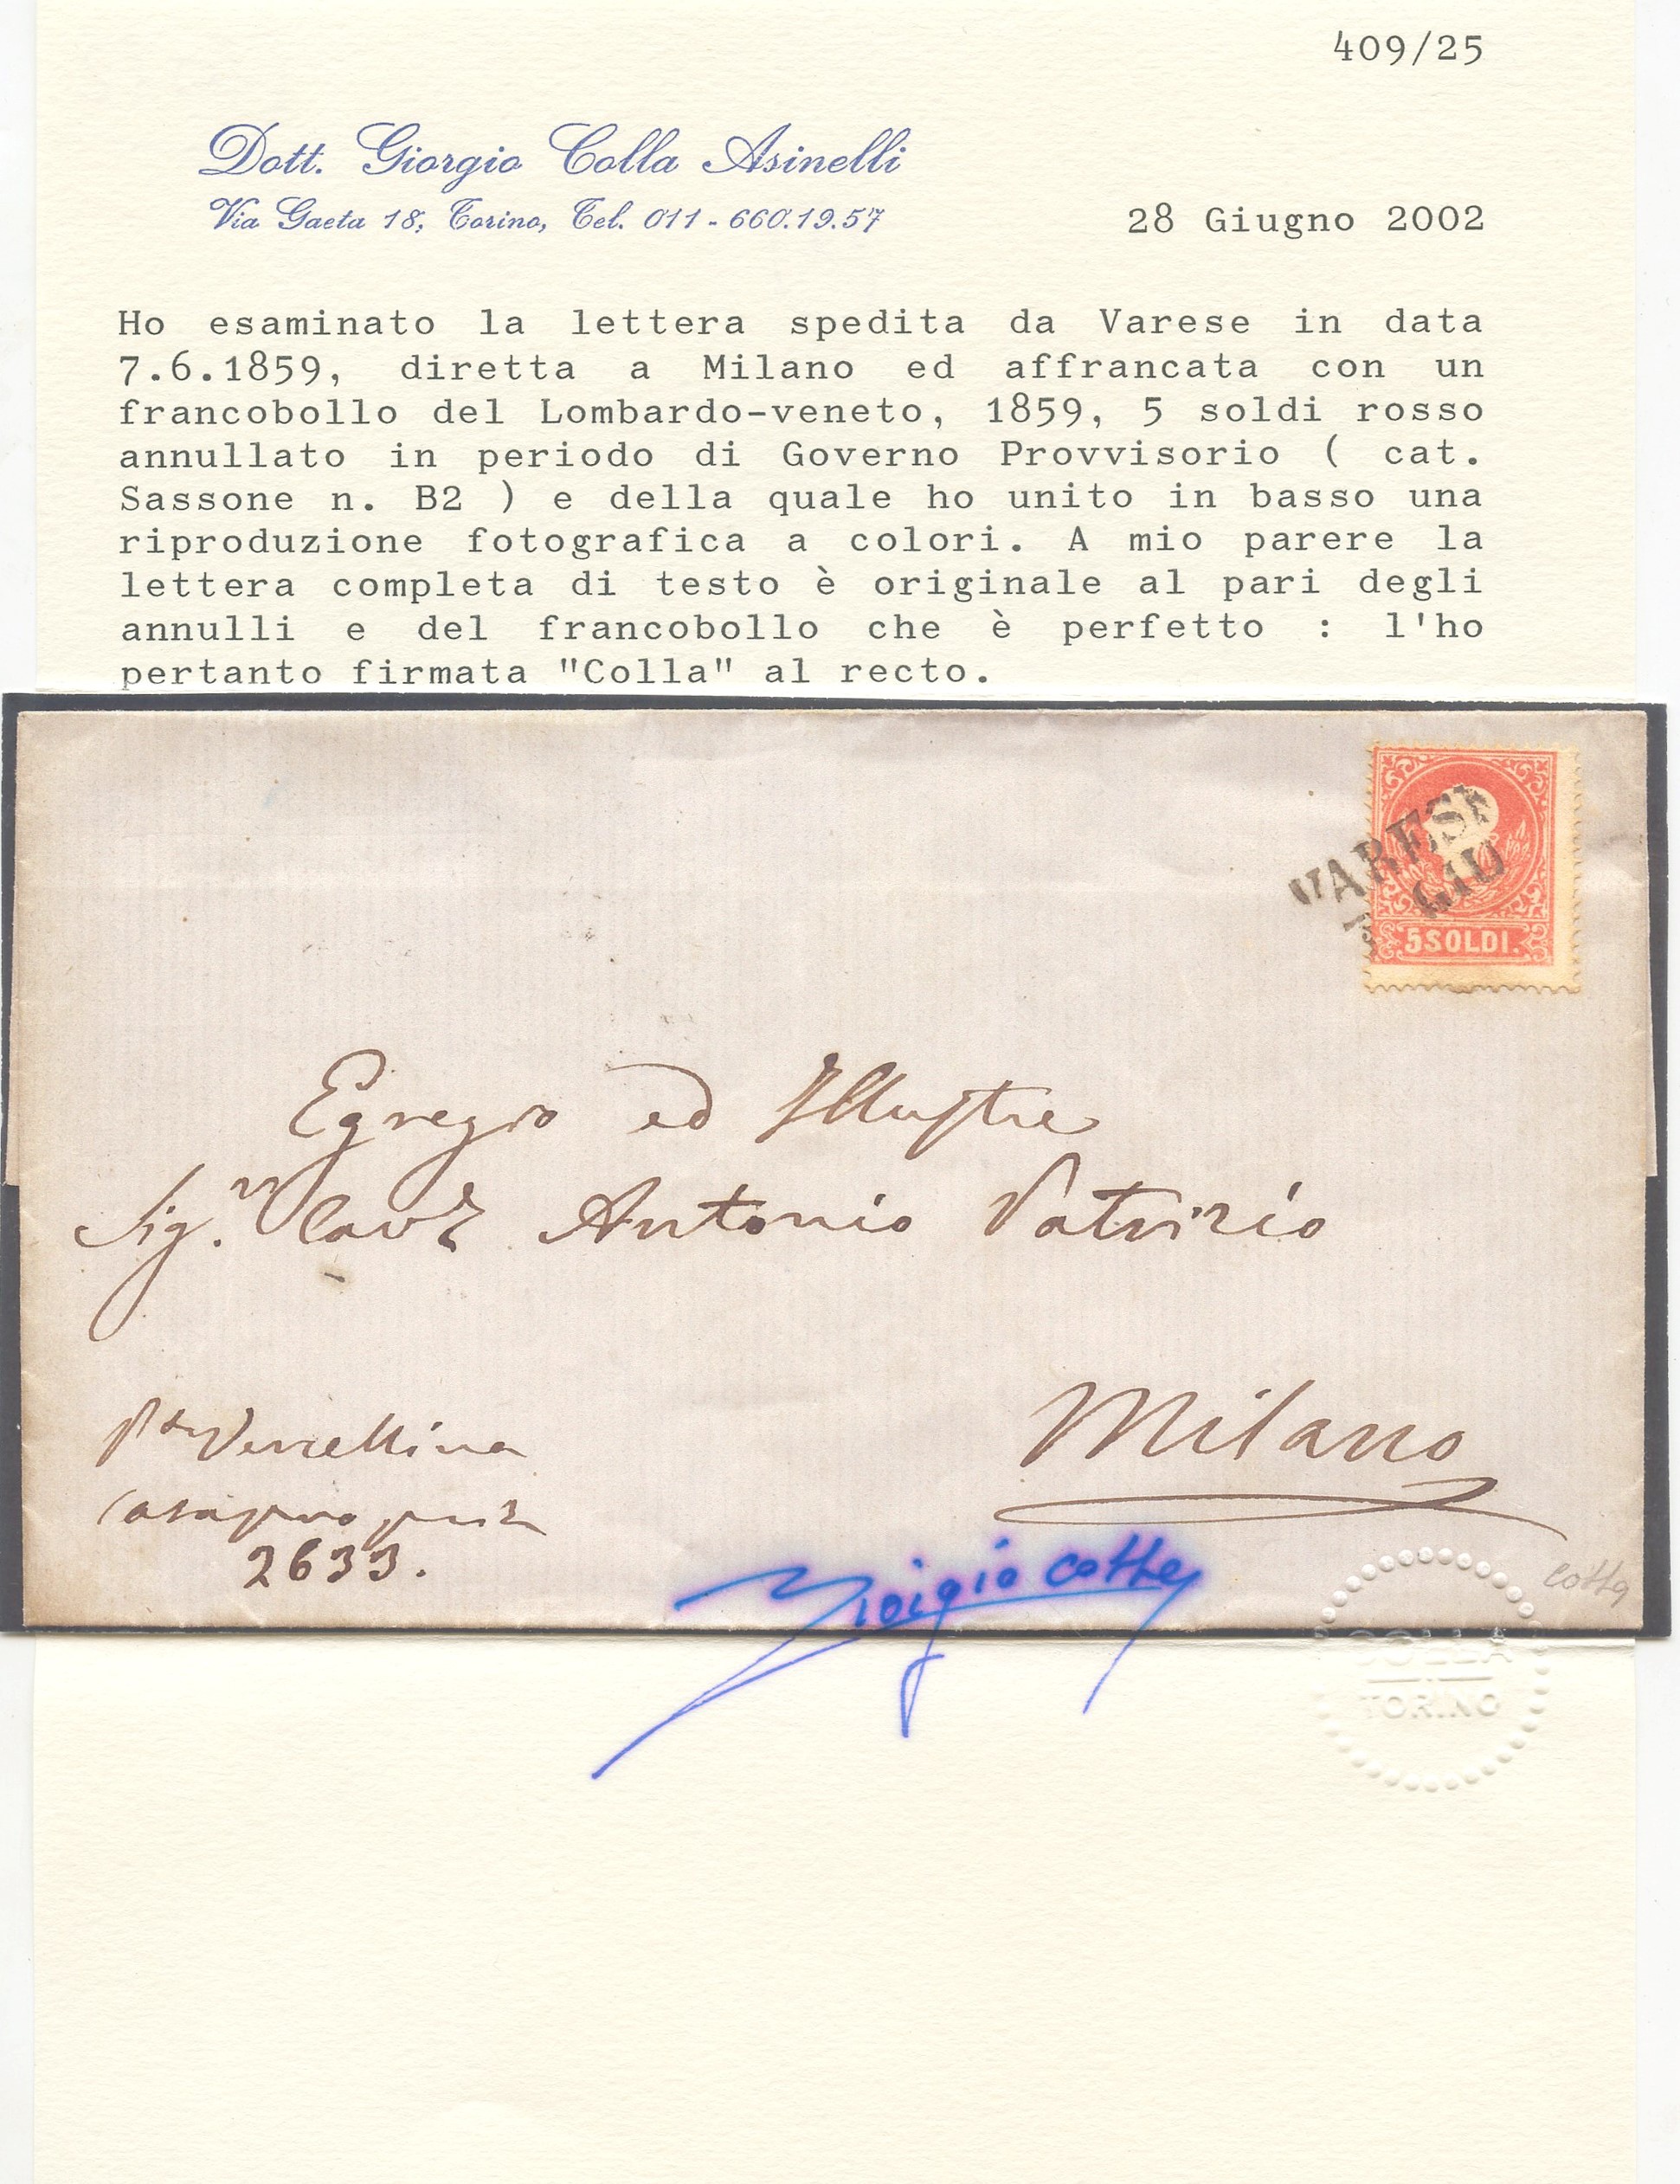 409/25
Dott. Giorgio Colla Asinelli
Via Gaeta 18, Torino, Tel. 011 - 660.19.57
28 Giugno 2002
Ho esaminato la lettera spedita da Varese in data
7.6.1859, diretta a Milano ed affrancata con un
francobollo del Lombardo-veneto, 1859, 5 soldi rosso
annullato in periodo di Governo Provvisorio ( cat.
Sassone n. B2 ) e della quale ho unito in basso una
riproduzione fotografica a colori. A mio parere la
lettera completa di testo è originale al pari degli
annulli e del francobollo che è perfetto : l'ho
pertanto firmata "Colla" al recto.
VARESE
GIU
5 SOLDI.
Egregio ed Illustre
Sig.r Antonio Patrizio
Milano
2633.
Giorgio Colla
Colla
COLLA
TORINO